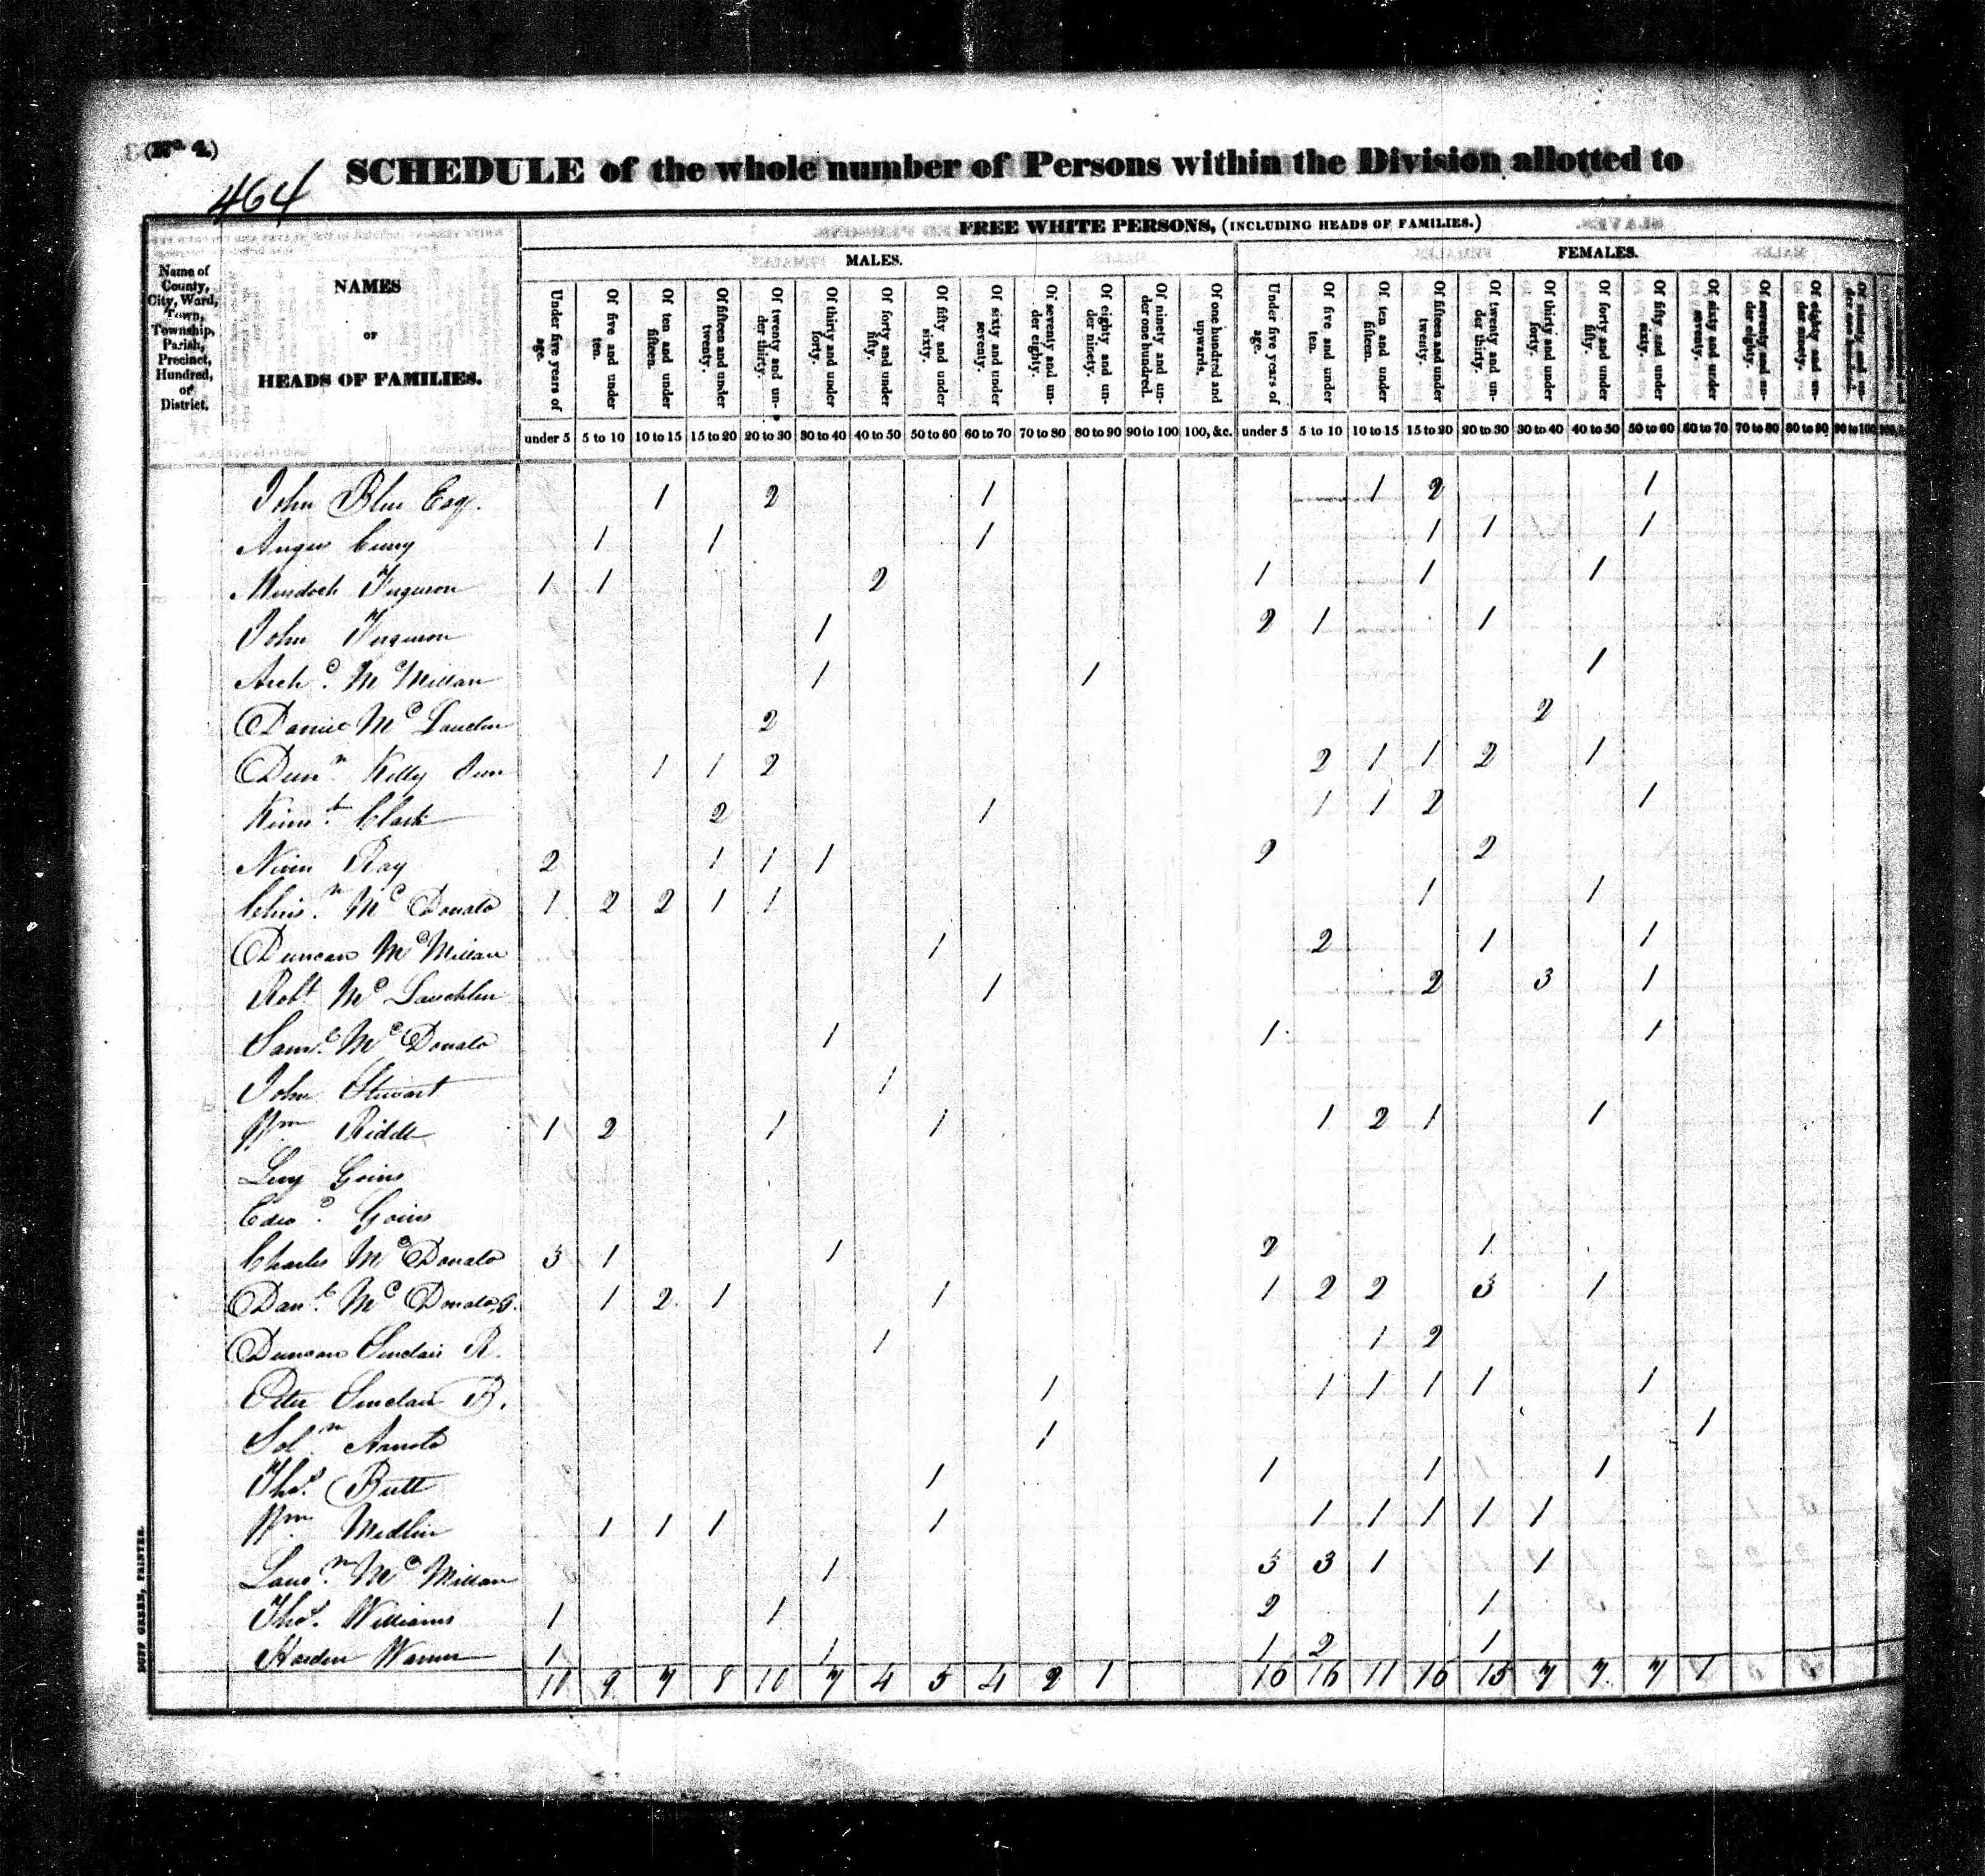 (No. 4.)
464
SCHEDULE of the whole number of Persons within the Division allotted to
FREE WHITE PERSONS, (INCLUDING HEADS OF FAMILIES.)
MALES. FEMALES.
Name of County, City, Ward, Town, Township, Parish, Precinct, Hundred, or District.
NAMES
OF
HEADS OF FAMILIES.
Under five years of age. Of five and under ten. Of ten and under fifteen. Of fifteen and under twenty. Of twenty and under thirty. Of thirty and under forty. Of forty and under fifty. Of fifty and under sixty. Of sixty and under seventy. Of seventy and under eighty. Of eighty and under ninety. Of ninety and under one hundred. Of one hundred and upwards. Under five years of age. Of five and under ten. Of ten and under fifteen. Of fifteen and under twenty. Of twenty and under thirty. Of thirty and under forty. Of forty and under fifty. Of fifty and under sixty. Of sixty and under seventy. Of seventy and under eighty. Of eighty and under ninety. Of ninety and under one hundred.
under 5 5 to 10 10 to 15 15 to 20 20 to 30 30 to 40 40 to 50 50 to 60 60 to 70 70 to 80 80 to 90 90 to 100 100, &c. under 5 5 to 10 10 to 15 15 to 20 20 to 30 30 to 40 40 to 50 50 to 60 60 to 70 70 to 80 80 to 90 90 to 100
John Blue Esqr. 1 2 1 1 2 1
Angus Curry 1 1 1 1 1 1
Murdoch Ferguson 1 1 2 1 1 1
John Ferguson 1 2 1 1
Archd. McMillan 1 1 1
Daniel McLauchn 2 2
Dunn. Kelly Sen 1 1 2 2 1 1 2 1
Kennt. Clark 2 1 1 1 2 1
Niven Ray 2 1 1 1 2 2
Chrisn. McDonald 1 2 2 1 1 1 1
Duncan McMillan 1 2 1 1
Robt McLauchlin 1 2 3 1
Saml. McDonald 1 1 1
John Stewart 1
Wm. Riddle 1 2 1 1 1 2 1 1
Levy Goins
Edwd. Goins
Charles McDonald 3 1 1 2 1
Danl. McDonald, G. 1 2 1 1 1 2 2 3 1
Duncan Sinclair R. 1 1 2
Peter Sinclair B. 1 1 1 1 1 1
Soln. Arnold 1 1
Thos. Butt 1 1 1 1
Wm. Medlin 1 1 1 1 1 1 1 1 1
Laun. McMillan 1 3 3 1 1
Thos. Williams 1 1 2 1
Harden Warner 1 1 1 2 1
10 9 7 8 10 7 4 5 4 2 1 16 16 11 16 15 7 7 7 1
DUFF GREEN, PRINTER.